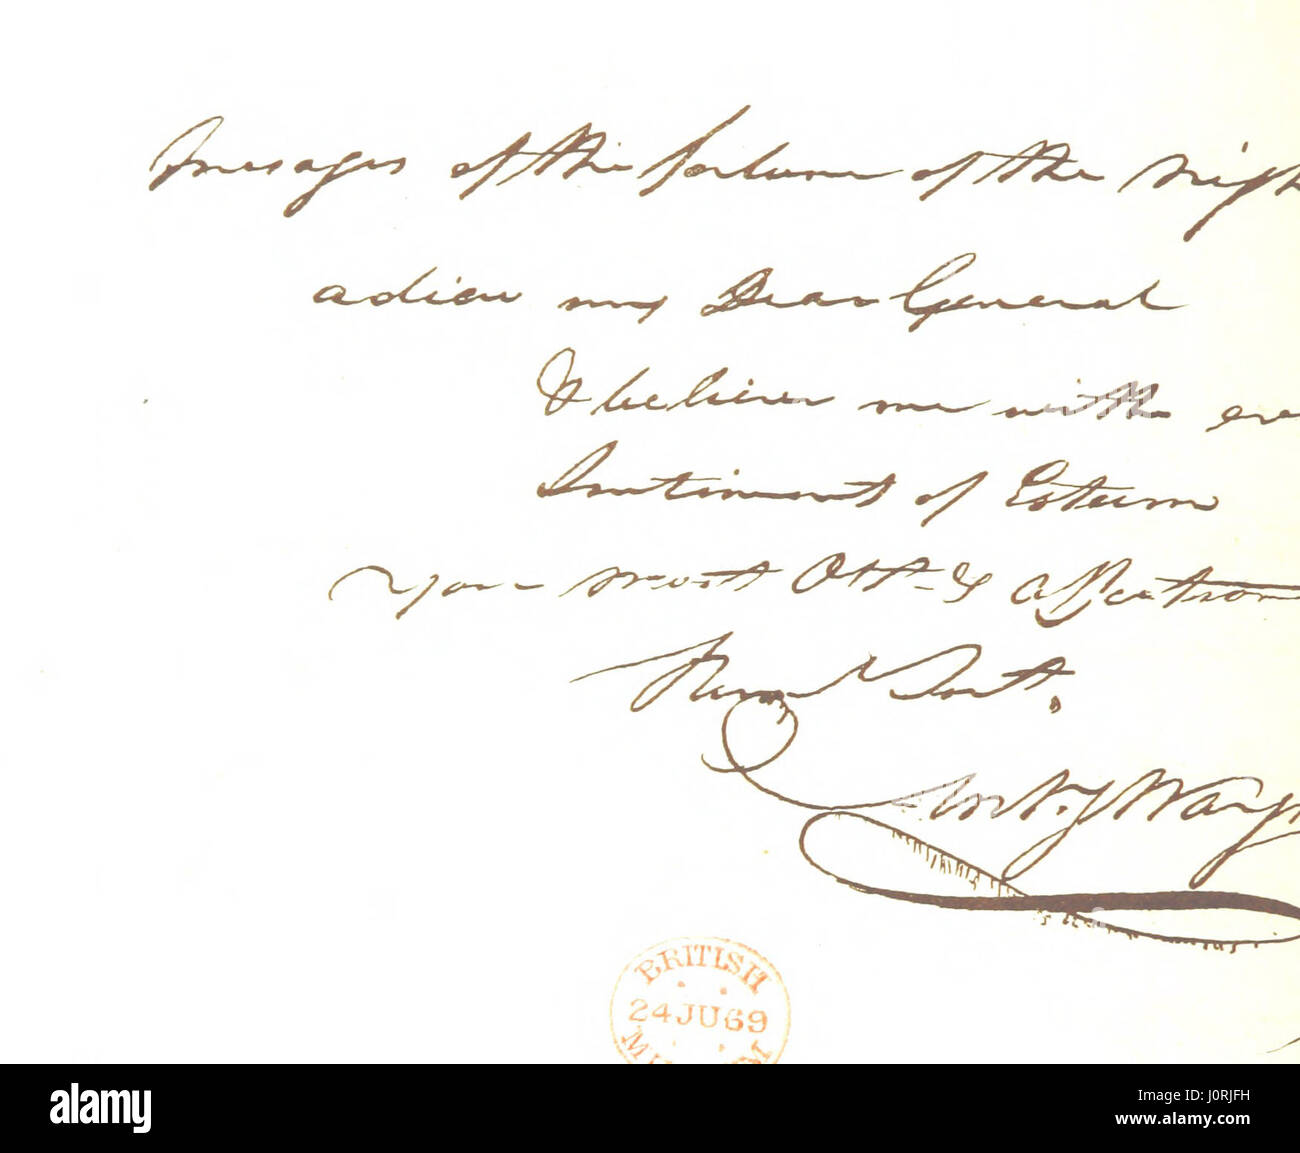 Presages of the fortune of the nigh
adieu my Dear General
& believe me with eve
Sentiment of Esteem
Your most Obt & affectiona
Huml Sert.
Anty Wayn
BRITISH
24 JU 69
a alamy stock photo
J0RJFH
www.alamy.com